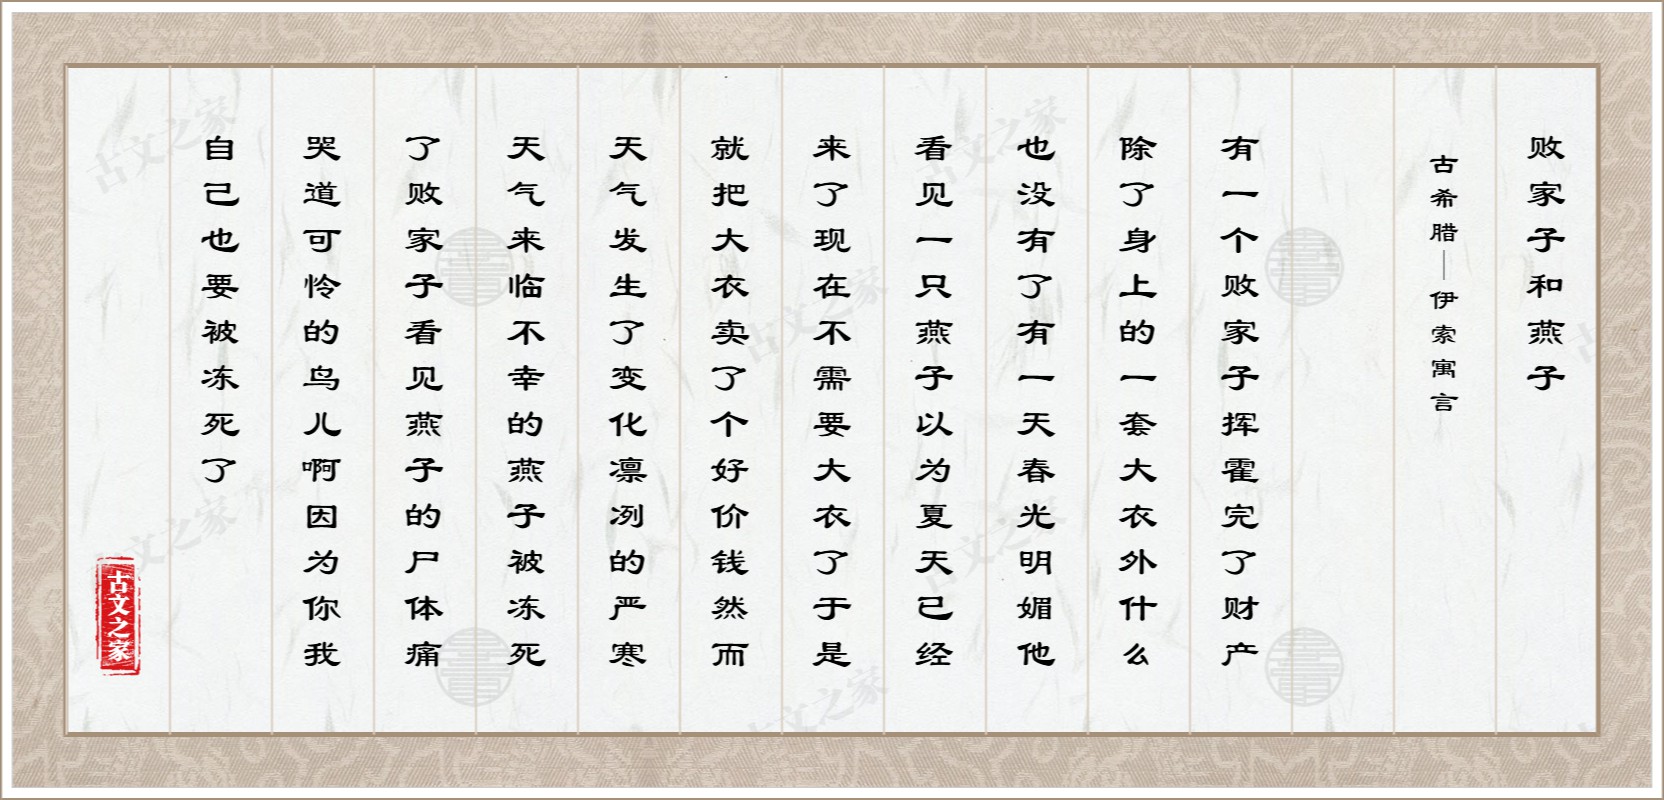 败家子和燕子
古希腊—伊索寓言
有一个败家子挥霍完了财产
除了身上的一套大衣外什么
也没有了有一天春光明媚他
看见一只燕子以为夏天已经
来了现在不需要大衣了于是
就把大衣卖了个好价钱然而
天气发生了变化凛冽的严寒
天气来临不幸的燕子被冻死
了败家子看见燕子的尸体痛
哭道可怜的鸟儿啊因为你我
自己也要被冻死了
古文之家